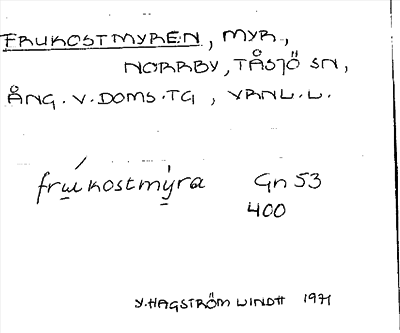 FRUKOSTMYREN, MYR.,
NORRBY, TÅSJÖ SN,
ÅNG. V. DOMS. TG, VANL. U.
frúkostmýra Gn 53
400
Y. HAGSTRÖM LINDH 1971